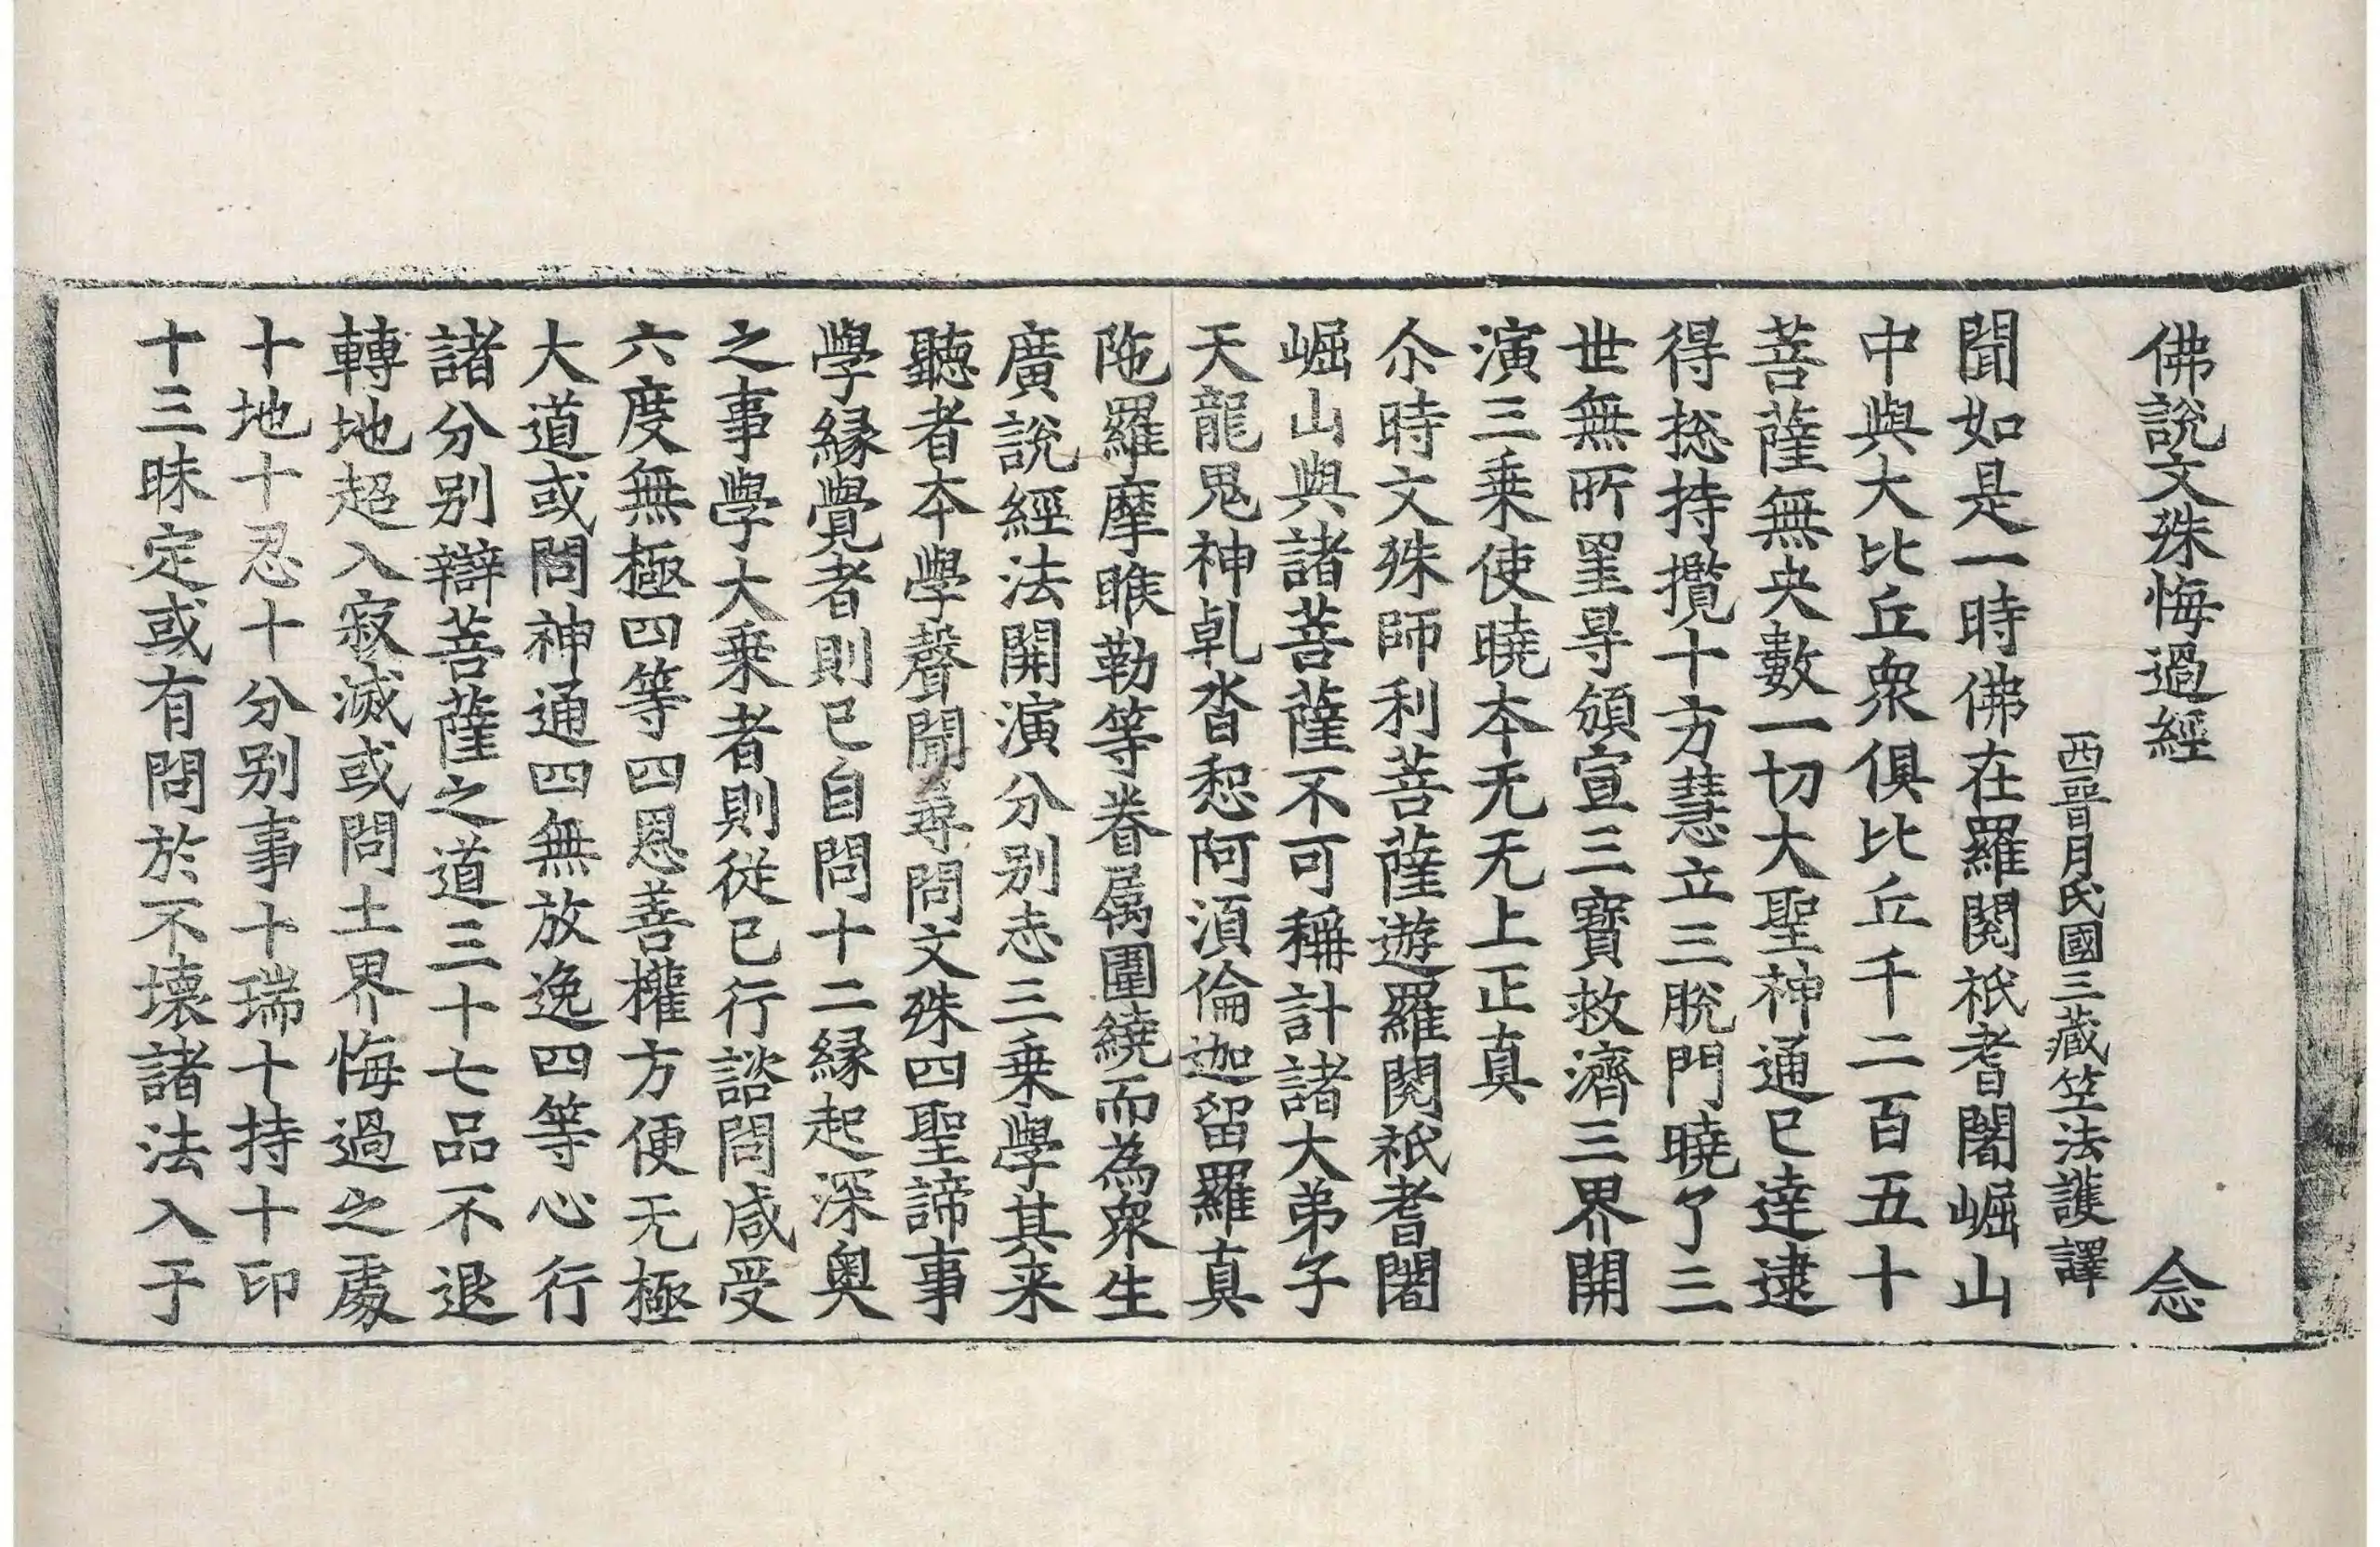 佛說文殊悔過經 念
西晉月氏國三藏竺法護譯
聞如是一時佛在羅閱祇耆闍崛山
中與大比丘衆俱比丘千二百五十
菩薩無央數一切大聖神通已達逮
得捴持攬十方慧立三脫門曉了三
世無所罣㝵頒宣三寶救濟三界開
演三乗使曉本无无上正真
尒時文殊師利菩薩遊羅閱祇耆闍
崛山與諸菩薩不可稱計諸大弟子
天龍鬼神乹沓惒阿湏倫迦留羅真
陁羅摩睺勒等眷属圍繞而為衆生
廣說經法開演分别志三乗學其来
聽者本學聲聞尋問文殊四聖諦事
學縁覺者則已自問十二縁起深奥
之事學大乗者則従已行諮問咸受
六度無極四等四恩善權方便无極
大道或問神通四無放逸四等心行
諸分别辯菩薩之道三十七品不退
轉地超入寂滅或問土界悔過之處
十地十忍十分别事十瑞十持十印
十三昧定或有問於不壊諸法入于